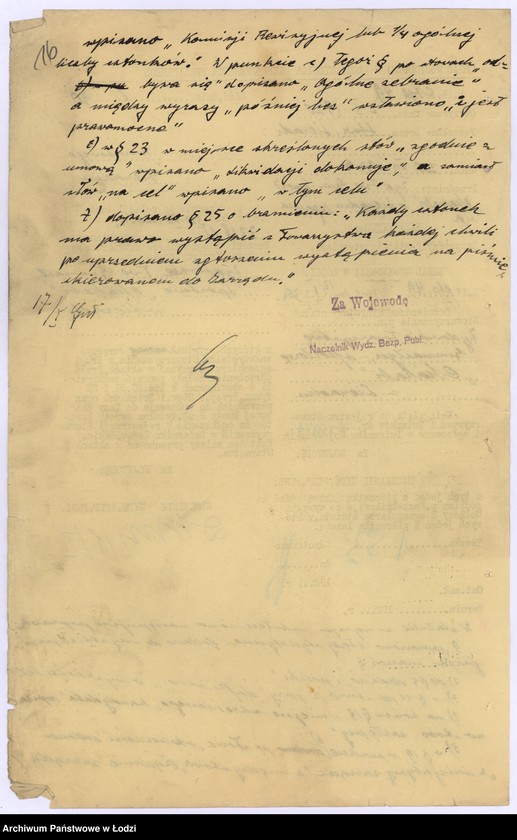 16
wpisano „Komisji Rewizyjnej lub 1/4 ogólnej
liczby członków." W punkcie c) tegoż § po słowach „od-
bywa się" dopisano „ogólne zebranie"
a między wyrazy „później bez" wstawiono „i jest
prawomocne"
e) w § 23 w miejsce skreślonych słów „zgodnie z
umową" wpisano „likwidacji dokonuje", a zamiast
słów „na cel" wpisano „w tym celu"
f) dopisano § 25 o brzmieniu: „Każdy członek
ma prawo wystąpić z Towarzystwa każdej chwili
po uprzedniem zgłoszeniu wystąpienia na piśmie
skierowanem do Zarządu."
17/X
Za Wojewodę
Naczelnik Wydz. Bezp. Publ.
Archiwum Państwowe w Łodzi
szukajwarchiwach.pl